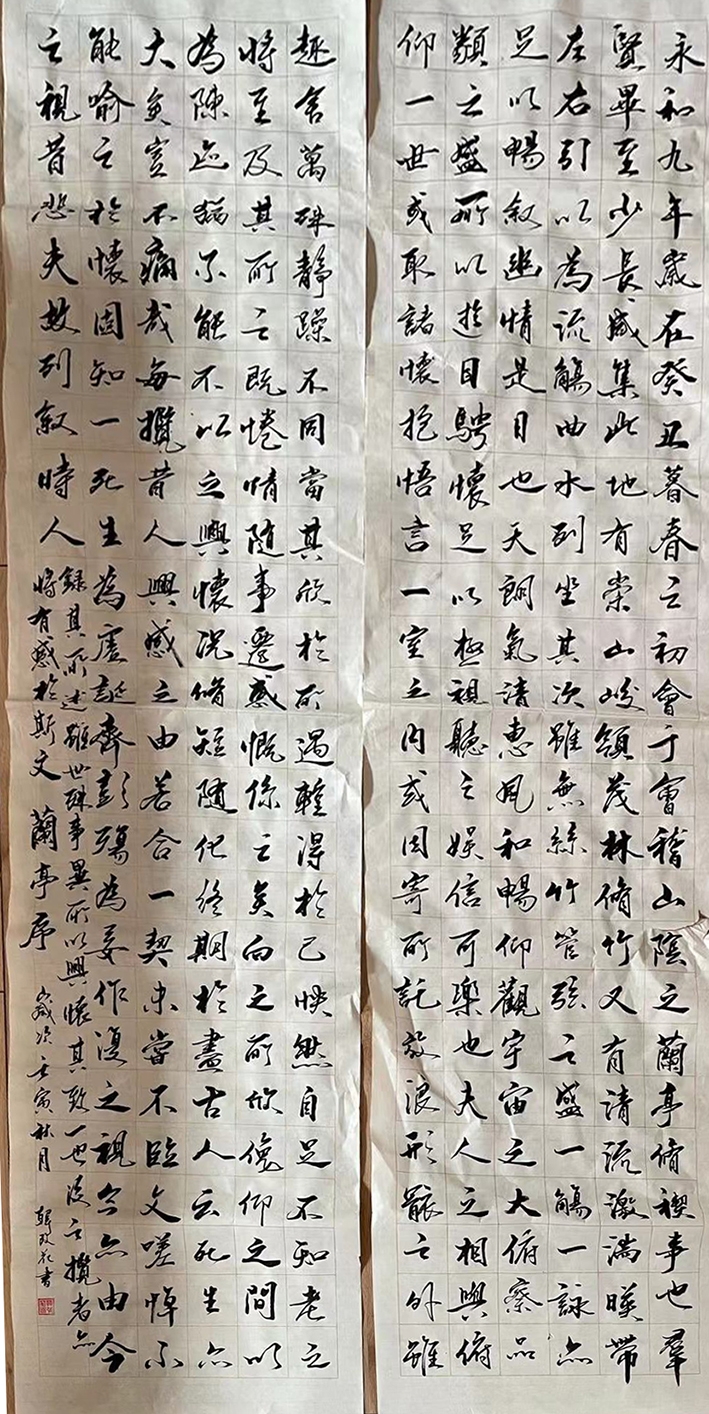 永和九年歲在癸丑暮春之初會于會稽山陰之蘭亭脩禊事也羣
賢畢至少長咸集此地有崇山峻領茂林脩竹又有清流激湍暎帶
左右引以為流觴曲水列坐其次雖無絲竹管弦之盛一觴一詠亦
足以暢敘幽情是日也天朗氣清惠風和暢仰觀宇宙之大俯察品
類之盛所以遊目騁懷足以極視聽之娛信可樂也夫人之相與俯
仰一世或取諸懷抱悟言一室之內或因寄所託放浪形骸之外雖
趣舍萬殊靜躁不同當其欣於所遇暫得於己怏然自足不知老之
將至及其所之既惓情隨事遷感慨係之矣向之所欣俛仰之間以
為陳迹猶不能不以之興懷況脩短隨化終期於盡古人云死生亦
大矣豈不痛哉每攬昔人興感之由若合一契未嘗不臨文嗟悼不
能喻之於懷固知一死生為虛誕齊彭殤為妄作後之視今亦由今
之視昔悲夫故列敘時人
錄其所述雖世殊事異所以興懷其致一也後之攬者亦
將有感於斯文 蘭亭序 歲次壬寅秋月 韓花書